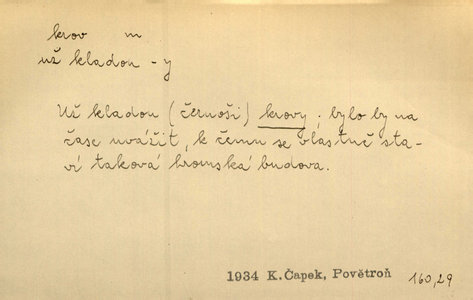 krov m
už kladou -y
Už kladou (černoši) krovy; bylo by na
čase uvážit, k čemu se vlastně sta-
ví taková hromská budova.
1934 K.Čapek, Povětroň 160,29